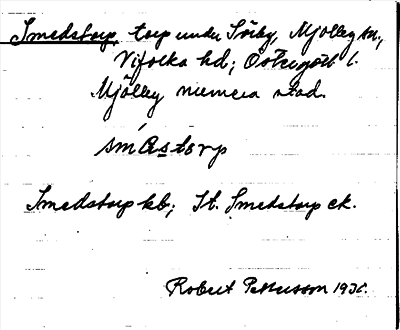 Smedstorp, torp under Sörby, Mjölby sn.,
Vifolka hd; Östergötl l.
Mjölby stad.
smástorp
Smedstorp kb; St. Smedstorp ek.
Robert Pettersson 193